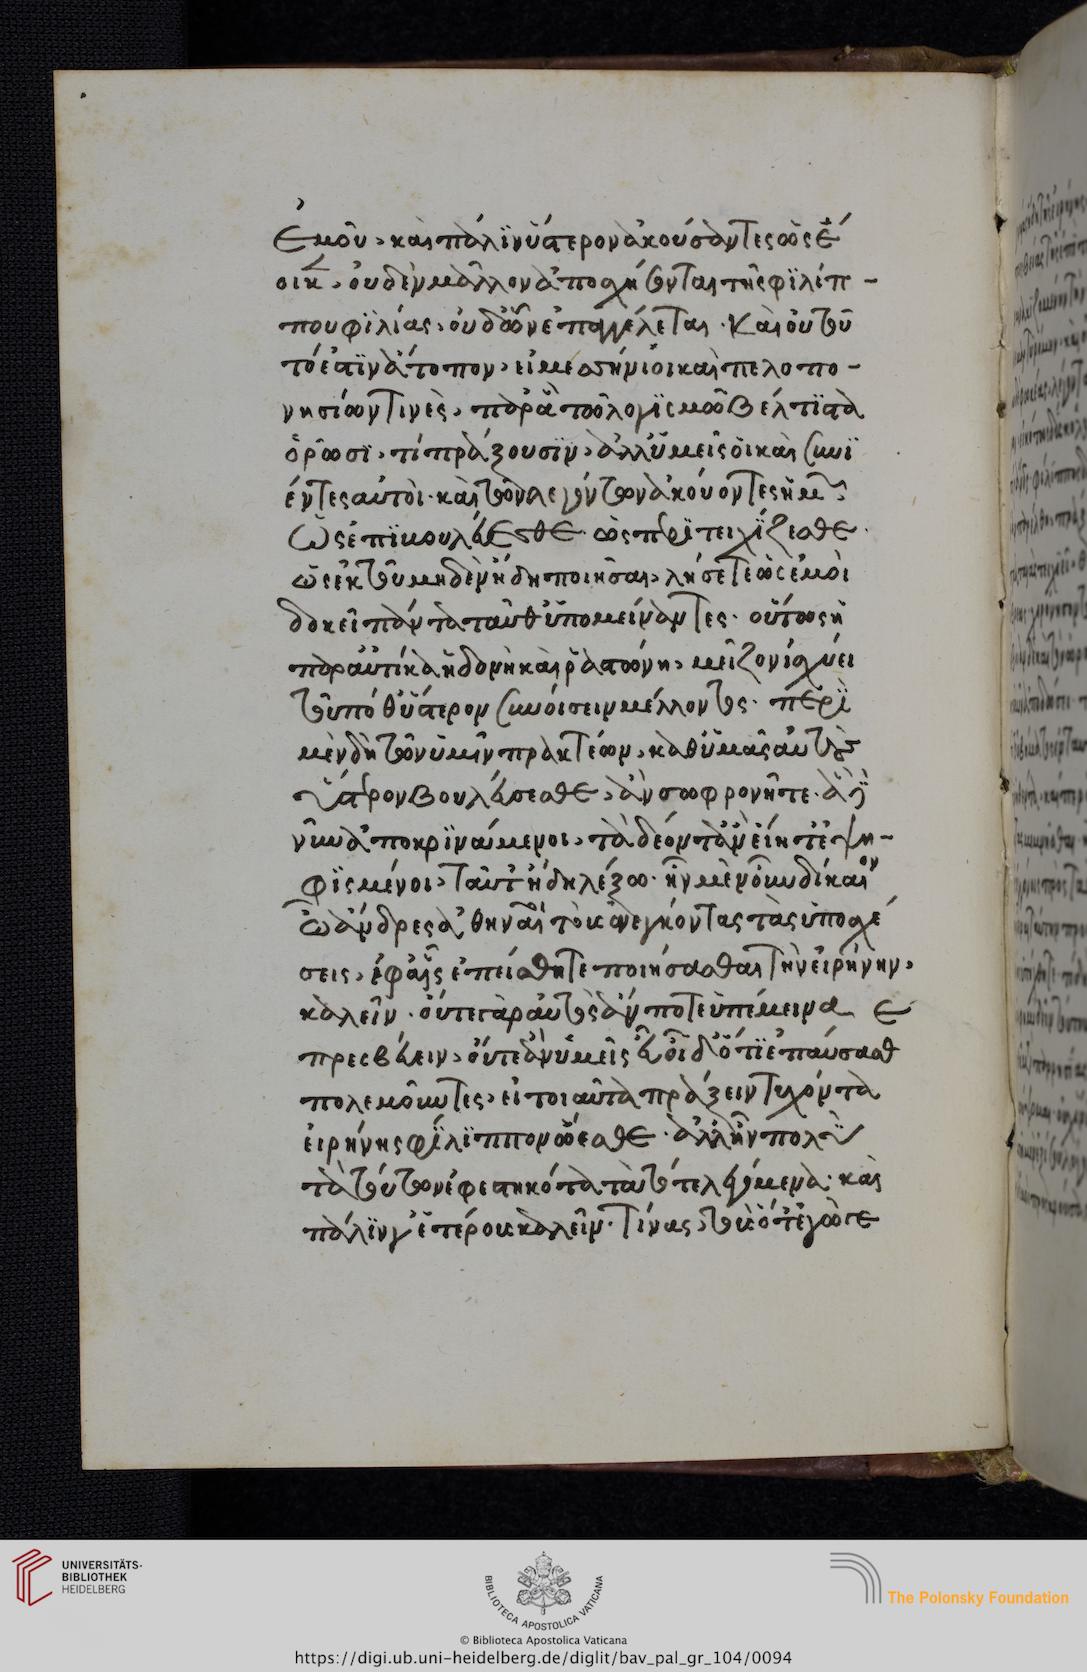 ἐμοῦ, καὶ πάλιν ὕστερον ἀκούσαντες ὡς ἔ
οικεν, οὐδὲν μᾶλλον ἀποσχήσονται τῆς φιλίπ-
που φιλίας, οὐδ' ὧν ἐπαγγέλεται. καὶ οὐ τοῦ
τό ἐστιν ἄτοπον, εἰ μεσσήνιοι καὶ πελοπο-
νησίων τινὲς, παρ' ἃ τῶ λογισμῶ βέλτιστα
ὁρῶσι, τί πράξουσιν, ἀλλ' ὑμεῖς οἱ καὶ συνι
έντες αὐτοὶ. καὶ τῶν λεγόντων ἀκούοντες ἡμῶν
ὡς ἐπιβουλεύεσθε. ὡς περιτειχίζεσθε.
ὡς ἐκ τοῦ μηδὲν ἤδη ποιῆσαι, λήσετε ὡς ἐμοὶ
δοκεῖ πάντα ταῦθ' ὑπομείναντες. οὕτως ἡ
παραυτίκα ἡδονὴ καὶ ῥαστώνη, μεῖζον ἰσχύει
τοῦ ποθ' ὕστερον συνοίσειν μέλλοντος. περὶ
μὲν δὴ τῶν ὑμῖν πρακτέων, καθ' ὑμᾶς αὐτοὺς
ὕστερον βουλεύσεσθε, ἂν σωφρονῆτε. ἃ δὲ
νῦν ἀποκριναμενοι, τὰ δέοντα ἂν εἴητε ἐψη-
φισμένοι, ταῦτ' ἤδη λέξω. ἦν μὲν οὖν δίκαιον
ὦ ἄνδρες ἀθηναῖοι τοὺς ἐνεγκόντας τὰς ὑποσχέ
σεις, ἐφ' αἷς ἐπείσθητε ποιήσασθαι τὴν εἰρήνην,
καλεῖν. οὔτε γὰρ αὐτὸς ἄν ποτε ὑπέμεινα
πρεσβεύειν, οὔτ' ἂν ὑμεῖς εὖ οἶδ' ὅτι ἐπαύσασθ
πολεμοῦντες, εἰ τοιαῦτα πράξειν τυχόντα
εἰρήνης φίλιππον ᾤεσθε. ἀλλ' ἦν πολὺ
τὰ τούτων ἀφεστηκότα τὰ τότε λεγόμενα. καὶ
πάλιν γ' ἑτέρους καλεῖν. τίνας, τοὺς ὅτ' ἐγὼ
UNIVERSITÄTS-
BIBLIOTHEK
HEIDELBERG
BIBLIOTECA APOSTOLICA VATICANA
The Polonsky Foundation
© Biblioteca Apostolica Vaticana
https://digi.ub.uni-heidelberg.de/diglit/bav_pal_gr_104/0094